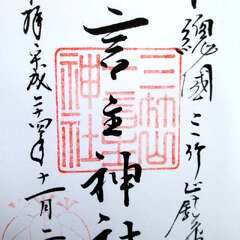 総國三竹山鎮座
言主神社
拝 平成二十四年十一月二
三竹山
神社